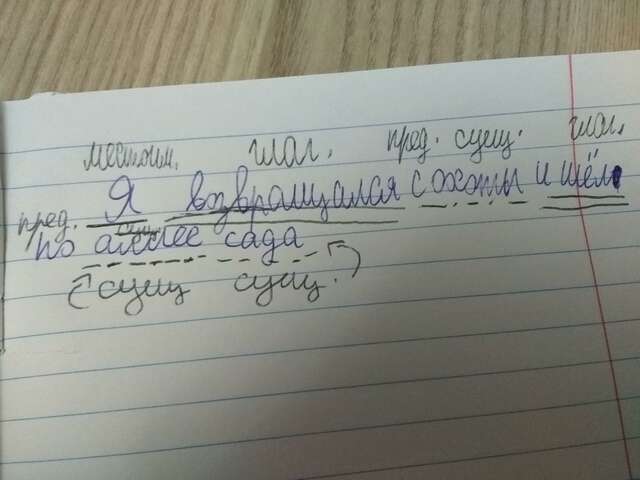 местоим. глаг. пред. сущ. глаг.
Я возвращался с охоты и шёл
пред.
по аллее сада
сущ
(сущ сущ.)